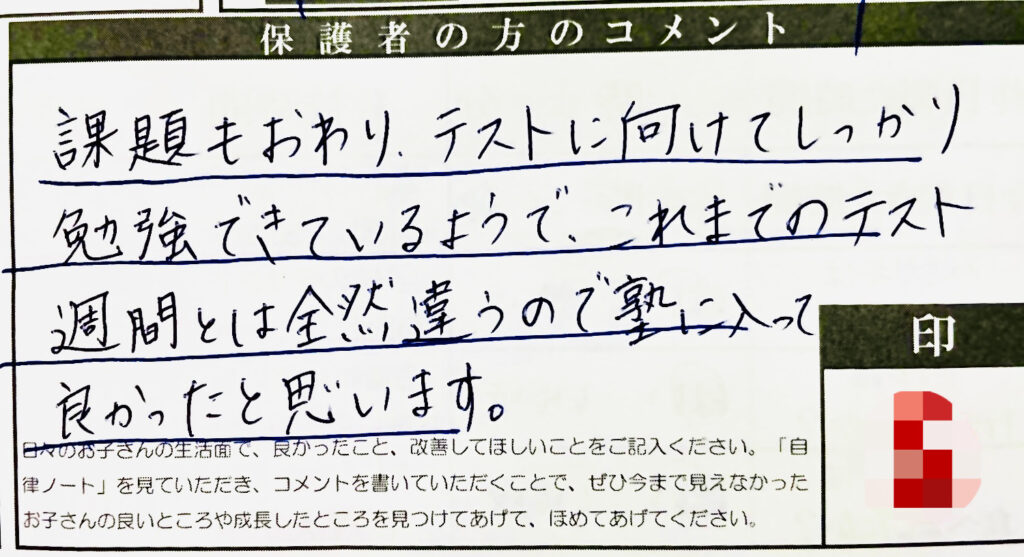 保護者の方のコメント
課題もおわり、テストに向けてしっかり
勉強できているようで、これまでのテスト
週間とは全然違うので塾に入って
良かったと思います。
印
日々のお子さんの生活面で、良かったこと、改善してほしいことをご記入ください。「自
律ノート」を見ていただき、コメントを書いていただくことで、ぜひ今まで見えなかった
お子さんの良いところや成長したところを見つけてあげて、ほめてあげてください。